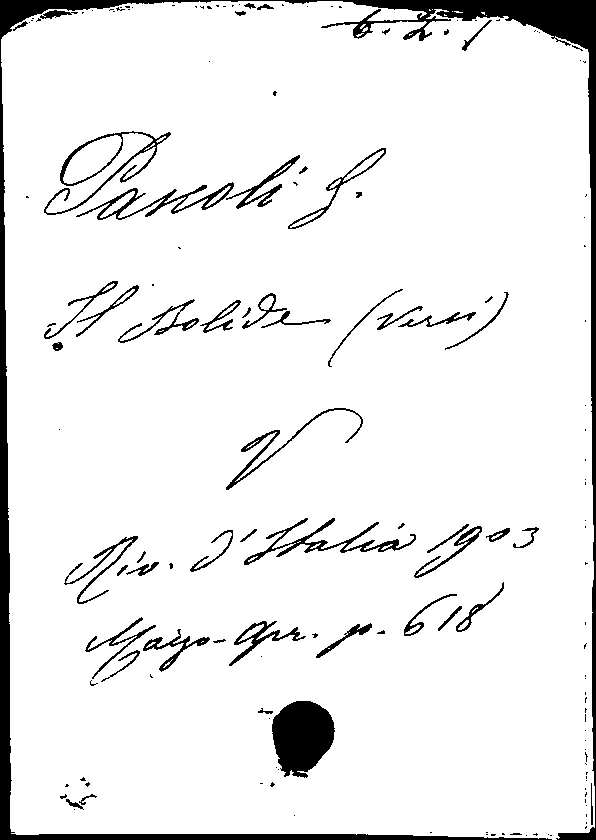 6. 2. 1
Pascoli G.
Il Bolide (versi)
V
Riv. d'Italia 1903
Marzo-Apr. p. 618